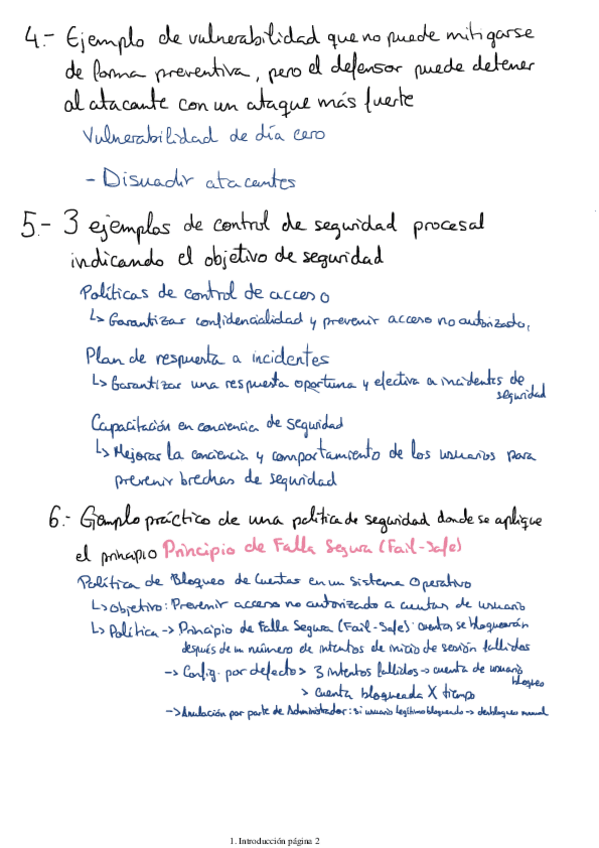 4.- Ejemplo de vulnerabilidad que no puede mitigarse
de forma preventiva, pero el defensor puede detener
al atacante con un ataque más fuerte
Vulnerabilidad de día cero
- Disuadir atacantes
5.- 3 ejemplos de control de seguridad procesal
indicando el objetivo de seguridad
Políticas de control de acceso
↳ Garantizar confidencialidad y prevenir acceso no autorizado.
Plan de respuesta a incidentes
↳ Garantizar una respuesta oportuna y efectiva a incidentes de
seguridad
Capacitación en conciencia de seguridad
↳ Mejorar la conciencia y comportamiento de los usuarios para
prevenir brechas de seguridad
6.- Ejemplo práctico de una política de seguridad donde se aplique
el principio Principio de Falla Segura (Fail-Safe)
Política de Bloqueo de Cuentas en un Sistema Operativo
↳ Objetivo: Prevenir acceso no autorizado a cuentas de usuario
↳ Política → Principio de Falla Segura (Fail-Safe): cuentas se bloquearán
después de un número de intentos de inicio de sesión fallidos
→ Config. por defecto > 3 intentos fallidos → cuenta de usuario
bloqueo
> Cuenta bloqueada X tiempo
→ Anulación por parte de Administrador: si usuario legítimo bloqueado → desbloqueo manual
1. Introducción página 2